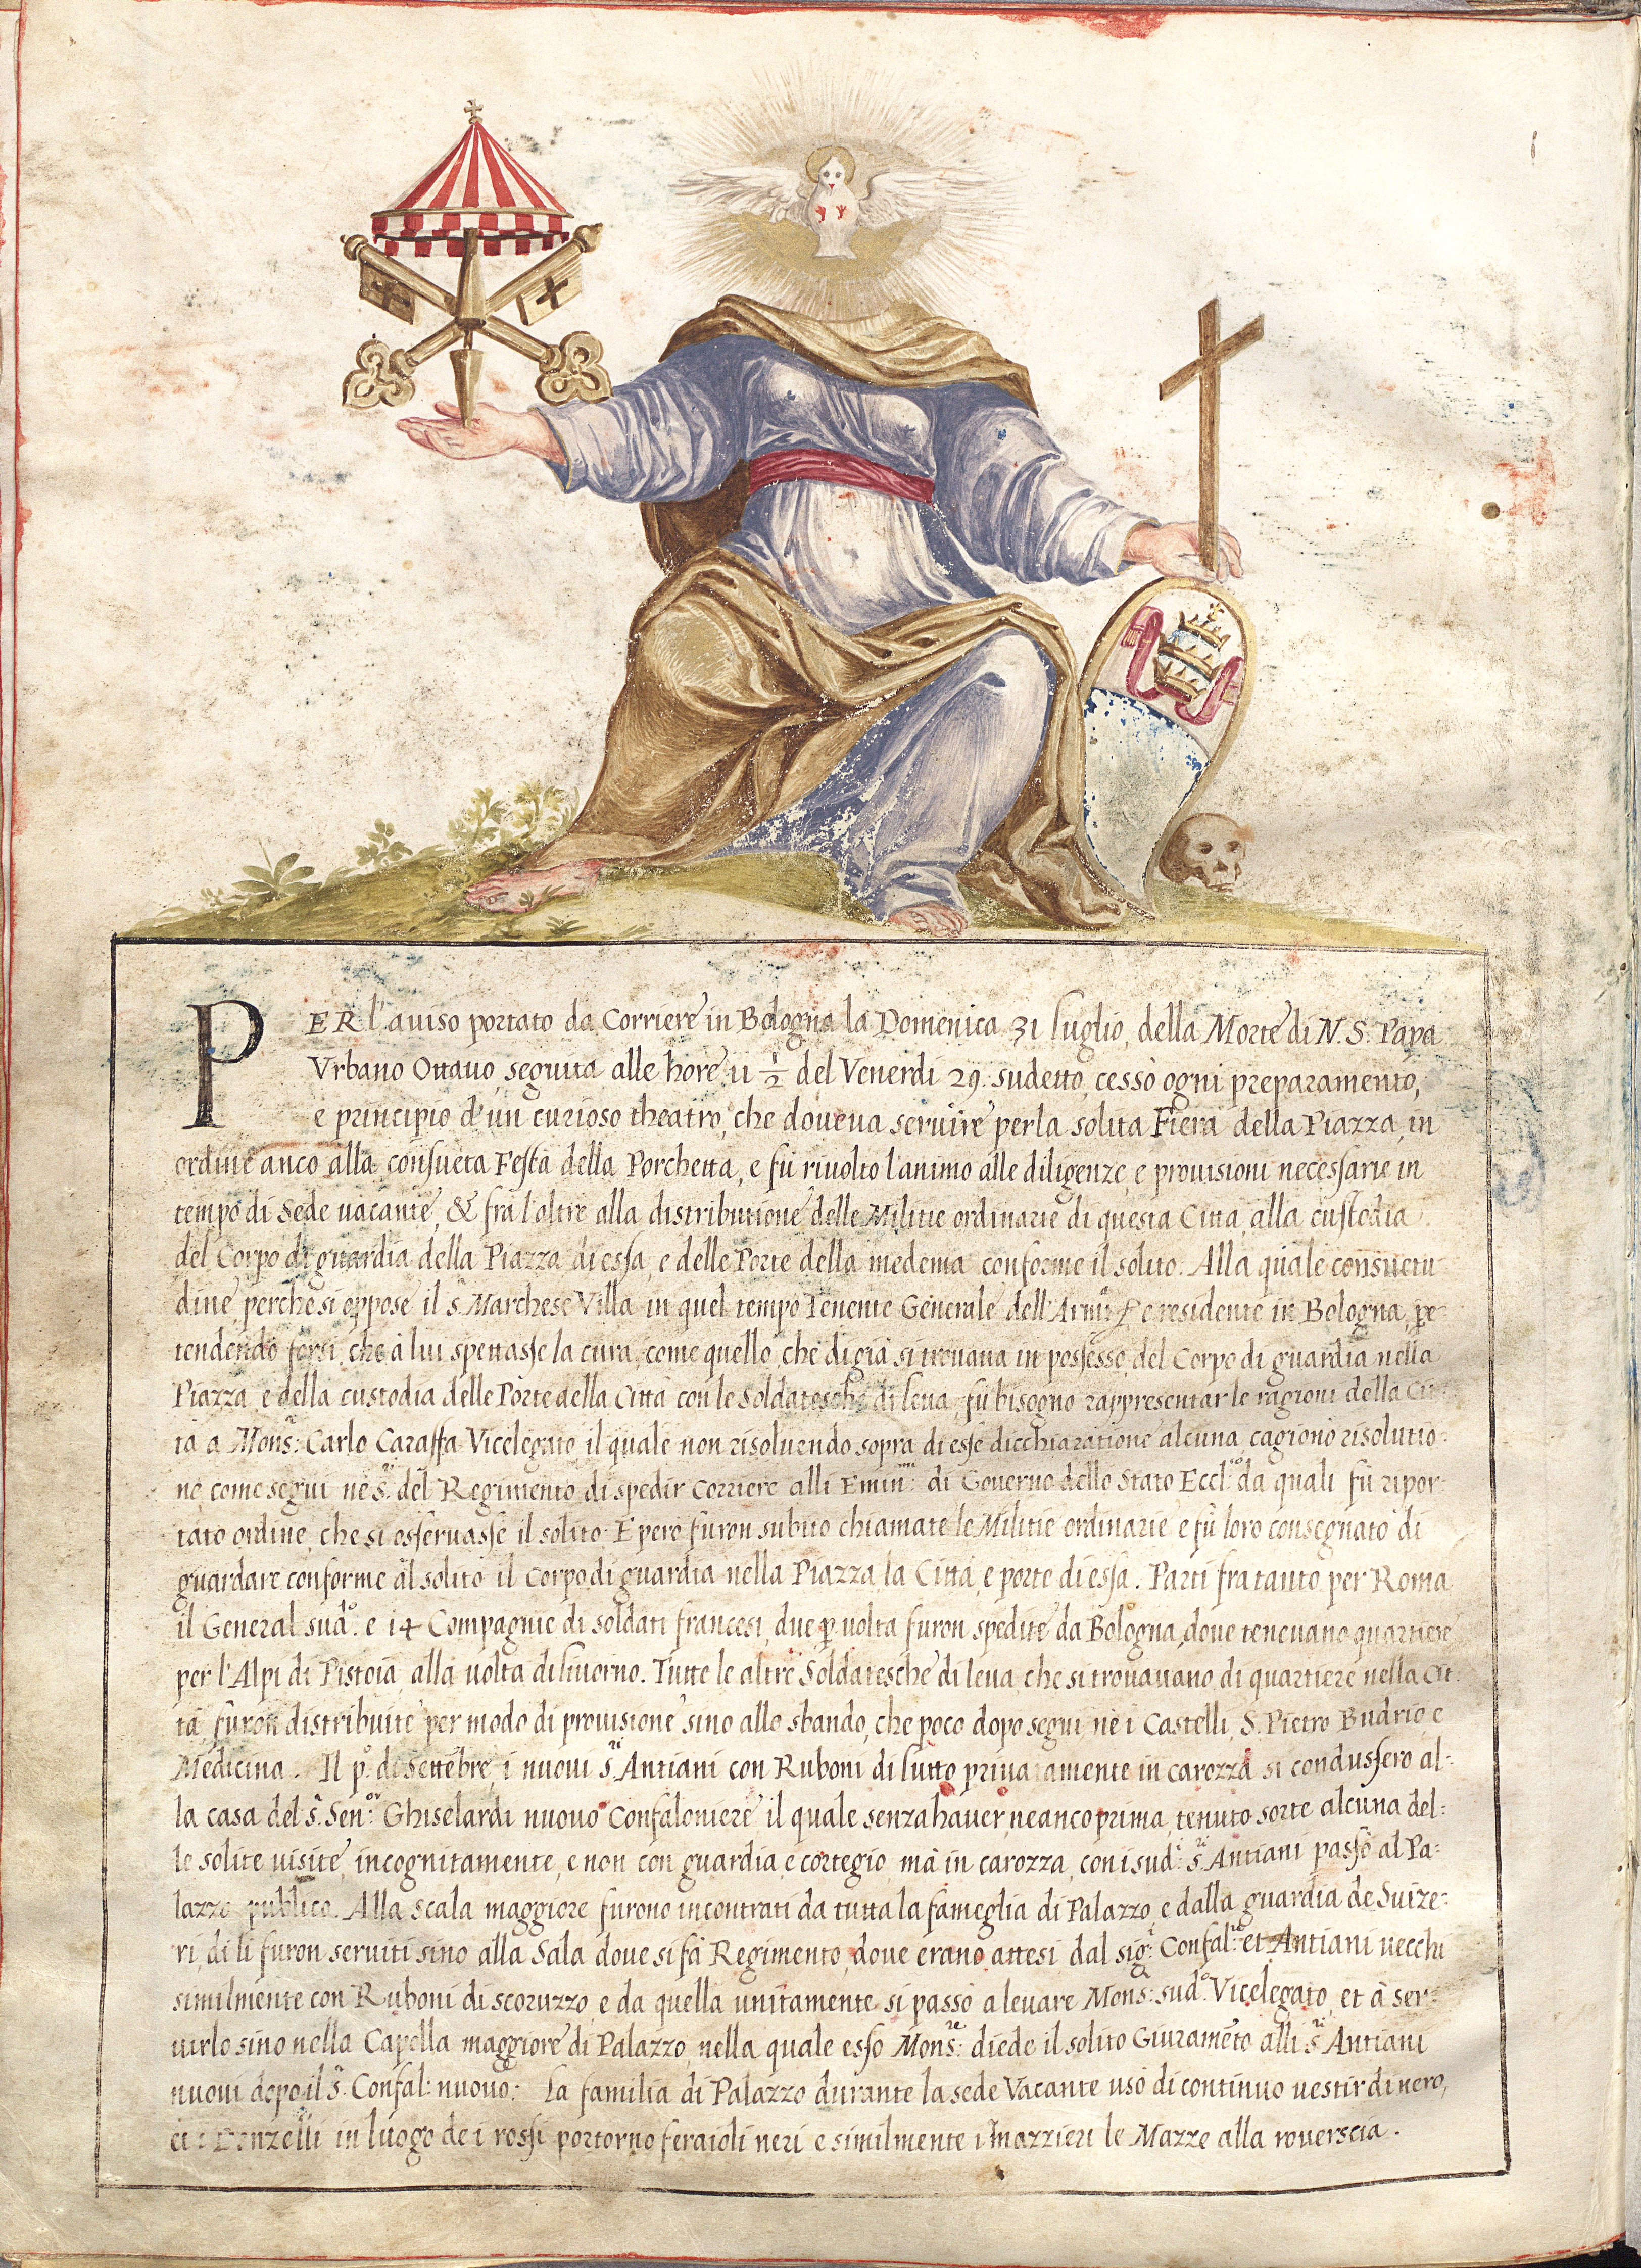 PER l'auiso portato da Corriere in Bologna la Domenica 31 luglio, della Morte di N. S. Papa
Vrbano Ottauo, seguita alle hore 11 1/2 del Venerdi 29. sudetto, cessò ogni preparamento,
e principio d'un curioso theatro, che doueua seruire per la solita Fiera della Piazza, in
ordine anco alla consueta Festa della Porchetta, e fù riuolto l'animo alle diligenze, e prouisioni necessarie in
tempo di Sede uacante, & frà l'altre alla distributione delle Militie ordinarie di questa Città, alla custodia
del Corpo di guardia della Piazza di essa, e delle Porte della medema conforme il solito. Alla quale consuetu
dine, perche si oppose il s.r Marchese Villa in quel tempo Tenente Generale dell'Armi residente in Bologna, pre-
tendendo forsi, che à lui spettasse la cura, come quello, che di già si trouaua in possesso del Corpo di guardia nella
Piazza, e della custodia delle Porte della Città con le Soldatesche di leua, fù bisogno rappresentar le ragioni della Cit-
tà a Mons.r Carlo Caraffa Vicelegato, il quale non risoluendo sopra di esse dicchiaratione alcuna, cagionò risolutio-
ne, come seguì nè s.ri del Regimento, di spedir Corriere alli Emin.mi di Gouerno dello Stato Eccl.co da quali fù ripor-
tato ordine, che si osseruasse il solito. E però furon subito chiamate le Militie ordinarie e fù loro consegnato di
guardare conforme al solito il Corpo di guardia nella Piazza, la Città, e porte di essa. Partì fra tanto per Roma
il General sud.o e 14 Compagnie di soldati francesi, due p uolta furon spedite da Bologna, doue teneuano quartiere
per l'Alpi di Pistoia alla uolta di liuorno. Tutte le altre Soldatesche di leua, che si trouauano di quartiere nella Cit-
tà, furon distribuite per modo di prouisione sino allo sbando, che poco dopo seguì nè i Castelli, S. Pietro Budrio e
Medicina. Il p.o di Settẽbre, i nuoui s.ri Antiani con Ruboni di lutto priuatamente in carozza si condussero al-
la casa del s.r Sen.or Ghiselardi nuouo Confaloniere il quale senza hauer, ne anco prima, tenuto sorte alcuna del-
le solite uisite, incognitamente, e non con guardia, e cortegio, mà in carozza, con i sud.i s.ri Antiani passò al Pa-
lazzo publico. Alla Scala maggiore furono incontrati da tutta la fameglia di Palazzo, e dalla guardia de Suize-
ri, di lì furon seruiti sino alla Sala doue si fà Regimento, doue erano attesi dal sig.r Confal.ro et Antiani uecchi
similmente con Ruboni di scoruzzo, e da quella unitamente si passò a leuare Mons.r sud.o Vicelegato, et à ser-
uirlo sino nella Capella maggiore di Palazzo, nella quale esso Mons.re diede il solito Giuramẽto alli s.ri Antiani
nuoui dopo il s.r Confal: nuouo; La familia di Palazzo durante la sede Vacante usò di continuo uestir di nero,
Donzelli in luogo de i rossi portorno feraioli neri e similmente i Mazzieri le Mazze alla rouerscia.